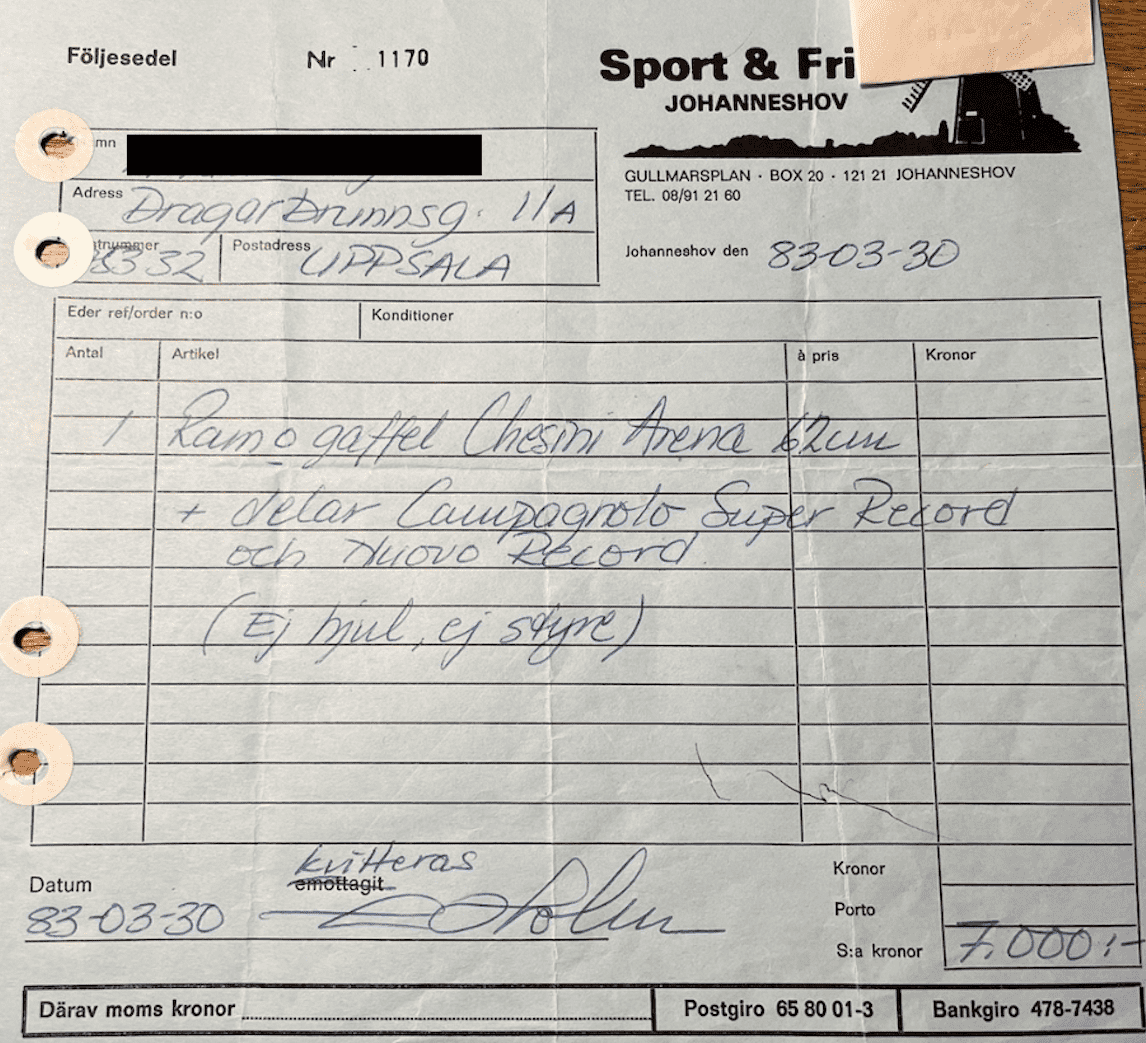 Följesedel Nr 1170
Sport & Fri
JOHANNESHOV
mn
GULLMARSPLAN · BOX 20 · 121 21 JOHANNESHOV
TEL. 08/91 21 60
Adress Dragarbrunnsg. 11A
tnummer 332 Postadress UPPSALA
Johanneshov den 83-03-30
Eder ref/order n:o Konditioner
Antal Artikel à pris Kronor
1 Ram o gaffel Chesini Arena 62cm
+ delar Campagnolo Super Record
och Nuovo Record.
(Ej hjul, ej styre)
kvitteras
Datum emottagit
83-03-30
Kronor
Porto
S:a kronor 7.000:-
Därav moms kronor Postgiro 65 80 01-3 Bankgiro 478-7438